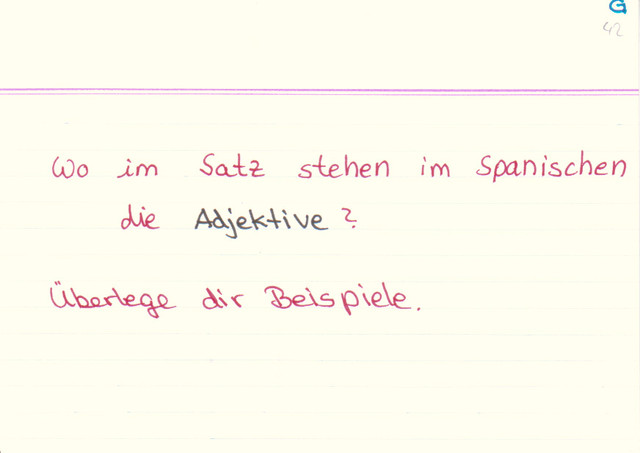 G
42
Wo im Satz stehen im Spanischen
die Adjektive?
Überlege dir Beispiele.